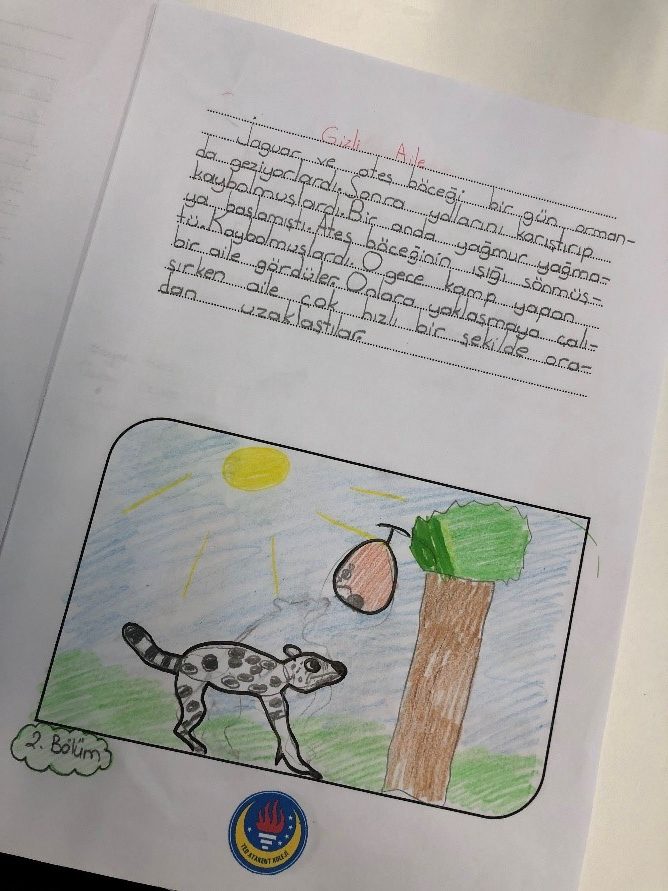 Gizli Aile
Jaguar ve ateş böceği bir gün orman-
da geziyorlardı. Sonra yollarını karıştırıp
kaybolmuşlardı. Bir anda yağmur yağma-
ya başlamıştı. Ateş böceğinin ışığı sönmüş-
tü. Kaybolmuşlardı. O gece kamp yapan
bir aile gördüler. Onlara yaklaşmaya çalı-
şırken aile çok hızlı bir şekilde ora-
dan uzaklaştılar.
2. Bölüm
TED ATAKENT KOLEJİ